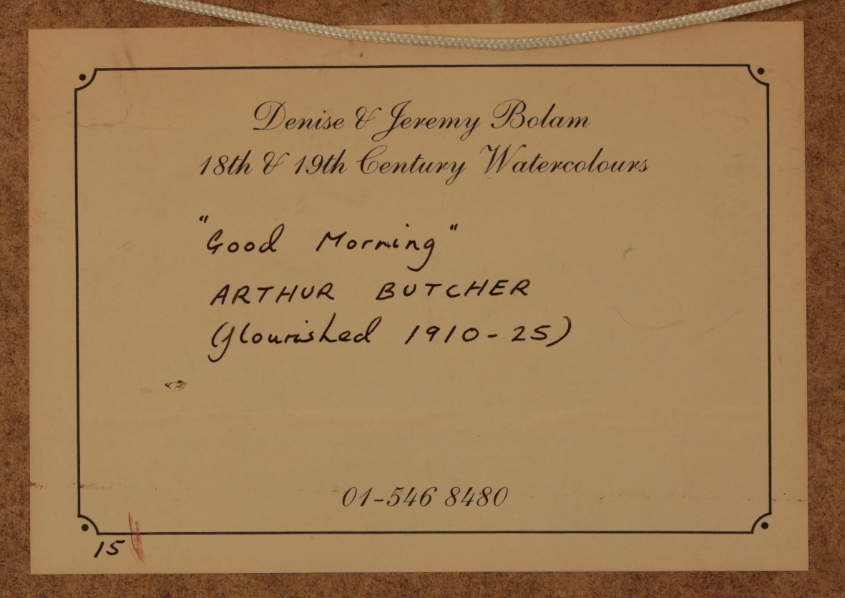 Denise & Jeremy Bolam
18th & 19th Century Watercolours
"Good Morning"
ARTHUR BUTCHER
(flourished 1910-25)
01-546 8480
15